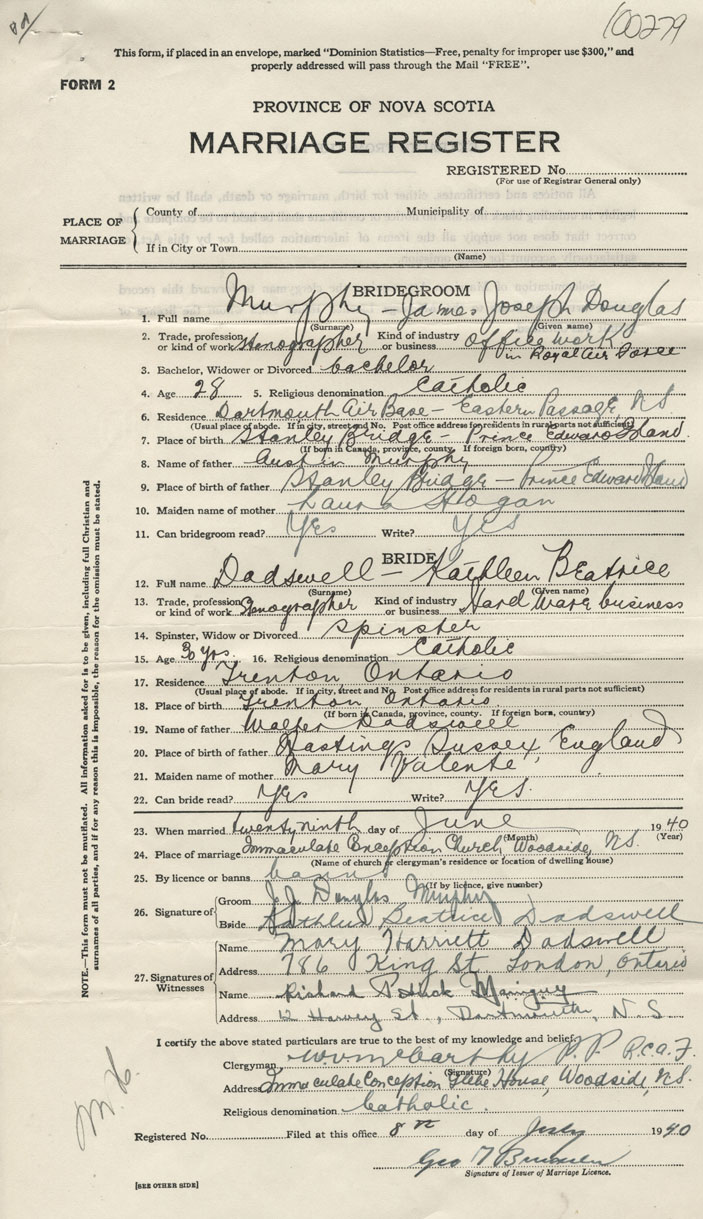 100279
This form, if placed in an envelope, marked "Dominion Statistics—Free, penalty for improper use $300," and
properly addressed will pass through the Mail "FREE".
FORM 2
PROVINCE OF NOVA SCOTIA
MARRIAGE REGISTER
REGISTERED No.
(For use of Registrar General only)
PLACE OF MARRIAGE
County of Municipality of
If in City or Town
(Name)
BRIDEGROOM
1. Full name Murphy - James Joseph Douglas
(Surname) (Given name)
2. Trade, profession or kind of work Stenographer Kind of industry or business office work
in Royal Air Force
3. Bachelor, Widower or Divorced bachelor
4. Age 28 5. Religious denomination Catholic
6. Residence Dartmouth Air Base - Eastern Passage NS
(Usual place of abode. If in city, street and No. Post office address for residents in rural parts not sufficient)
7. Place of birth Stanley Bridge - Prince Edward Island
(If born in Canada, province, county. If foreign born, country)
8. Name of father Austin Murphy
9. Place of birth of father Stanley Bridge - Prince Edward Island
10. Maiden name of mother Laura Hogan
11. Can bridegroom read? Yes Write? Yes
BRIDE
12. Full name Dadswell - Kathleen Beatrice
(Surname) (Given name)
13. Trade, profession or kind of work Stenographer Kind of industry or business Hardware business
14. Spinster, Widow or Divorced Spinster
15. Age 30 yrs. 16. Religious denomination Catholic
17. Residence Trenton Ontario
(Usual place of abode. If in city, street and No. Post office address for residents in rural parts not sufficient)
18. Place of birth Trenton Ontario
(If born in Canada, province, county. If foreign born, country)
19. Name of father Walter Dadswell
20. Place of birth of father Hastings Sussex, England
21. Maiden name of mother Mary Valente
22. Can bride read? Yes Write? Yes.
23. When married twenty ninth day of June 1940
(Month) (Year)
24. Place of marriage Immaculate Conception Church, Woodside, NS.
(Name of church or clergyman's residence or location of dwelling house)
25. By licence or banns banns
(If by licence, give number)
26. Signature of
Groom J.J. Douglas Murphy
Bride Kathleen Beatrice Dadswell
27. Signatures of Witnesses
Name Mary Harriett Dadswell
Address 786 King St. London, Ontario
Name Richard Patrick
Address 12 Harvey St., Dartmouth, N.S.
I certify the above stated particulars are true to the best of my knowledge and belief.
Clergyman McCarthy P.P. R.C.A.F.
(Signature)
Address Immaculate Conception Glebe House, Woodside, NS.
Religious denomination Catholic.
Registered No. Filed at this office 8 day of July 1940
Geo T
Signature of Issuer of Marriage Licence.
[SEE OTHER SIDE]
NOTE.—This form must not be mutilated. All information asked for is to be given, including full Christian and
surnames of all parties, and if for any reason this is impossible, the reason for the omission must be stated.